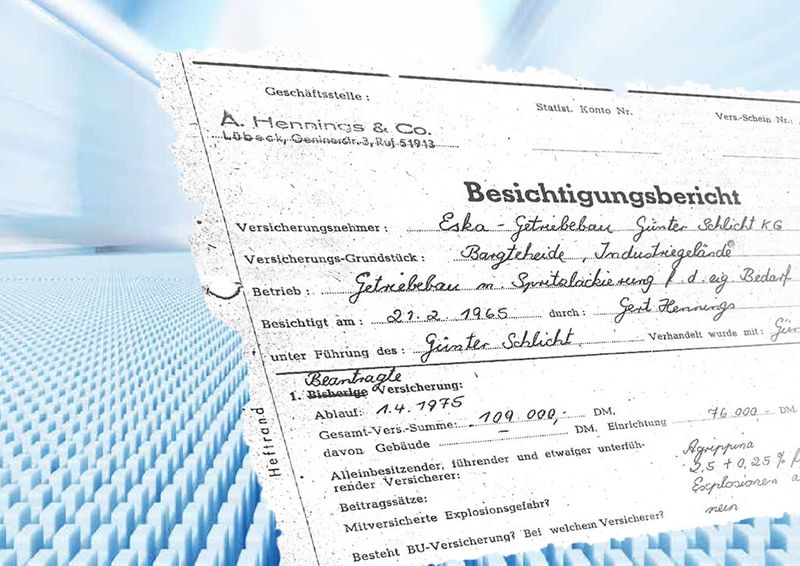 Geschäftsstelle:
Statist. Konto Nr.
Vers.-Schein Nr.:
A. Hennings & Co.
Lübeck, Geninerstr. 3, Ruf 51913
Besichtigungsbericht
Versicherungsnehmer: Eska - Getriebebau Günter Schlicht KG
Versicherungs-Grundstück: Bargteheide, Industriegelände
Betrieb: Getriebebau m. Spritzlackierung f. d. eig. Bedarf
Besichtigt am: 21. 2. 1965 durch: Gert Hennings
unter Führung des: Günter Schlicht. Verhandelt wurde mit:
Beantragte
1. Bisherige Versicherung:
Ablauf: 1.4. 1975
Gesamt-Vers.-Summe: 109 000,- DM,
davon Gebäude – DM, Einrichtung 76 000 - DM.
Alleinbesitzender, führender und etwaiger unterfüh-
render Versicherer: Agrippina
Beitragssätze: 2,5 + 0,25 % f
Mitversicherte Explosionsgefahr? Explosionen a
Besteht BU-Versicherung? Bei welchem Versicherer? nein
Heftrand